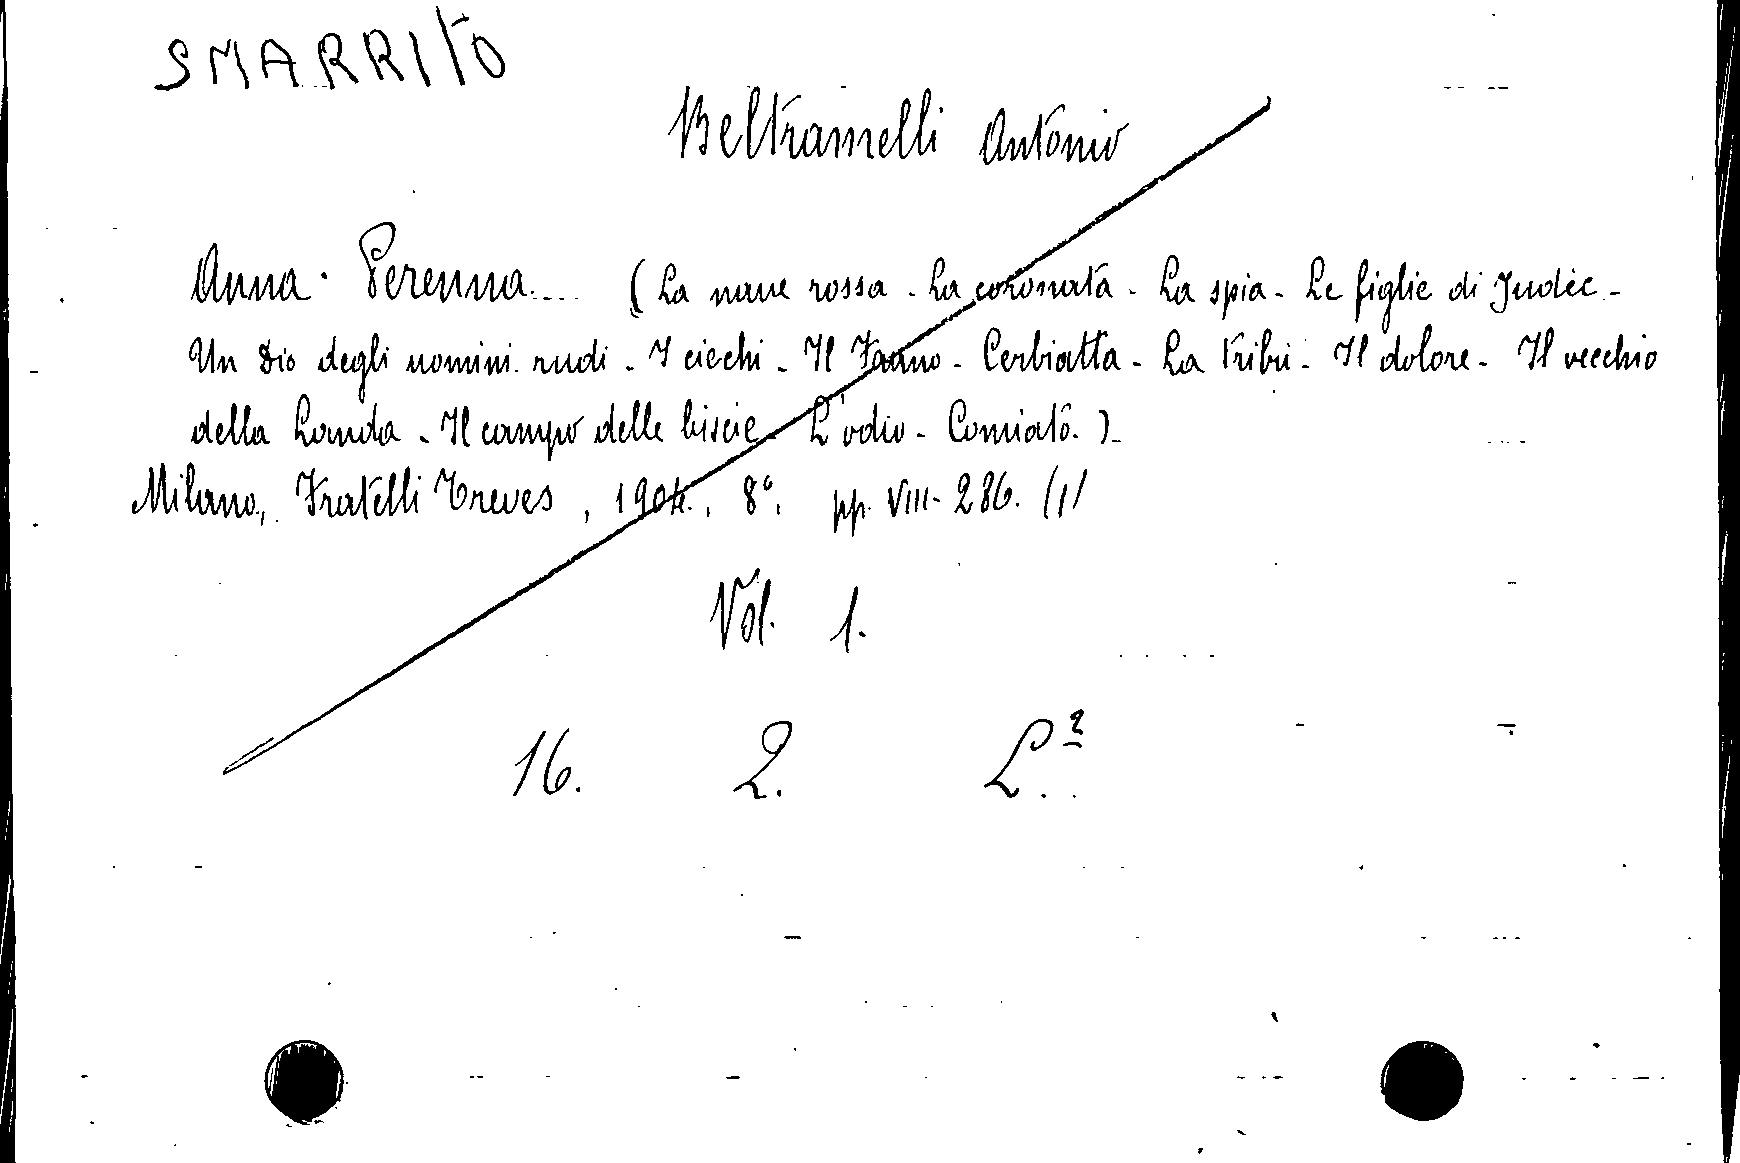 SMARRITO
Beltramelli Antonio
Anna Perenna.... (La nave rossa - La coronata - La spia - Le figlie di Judic -
Un Dio degli uomini rudi - I ciechi - Il Fauno - Cerbiatta - La Tribù - Il dolore - Il vecchio
della Landa - Il campo delle biscie - L'odio - Comiato.) -
Milano, Fratelli Treves, 1904., 8°. pp. VIII-286. (1)
Vol. 1.
16. 2. L.²